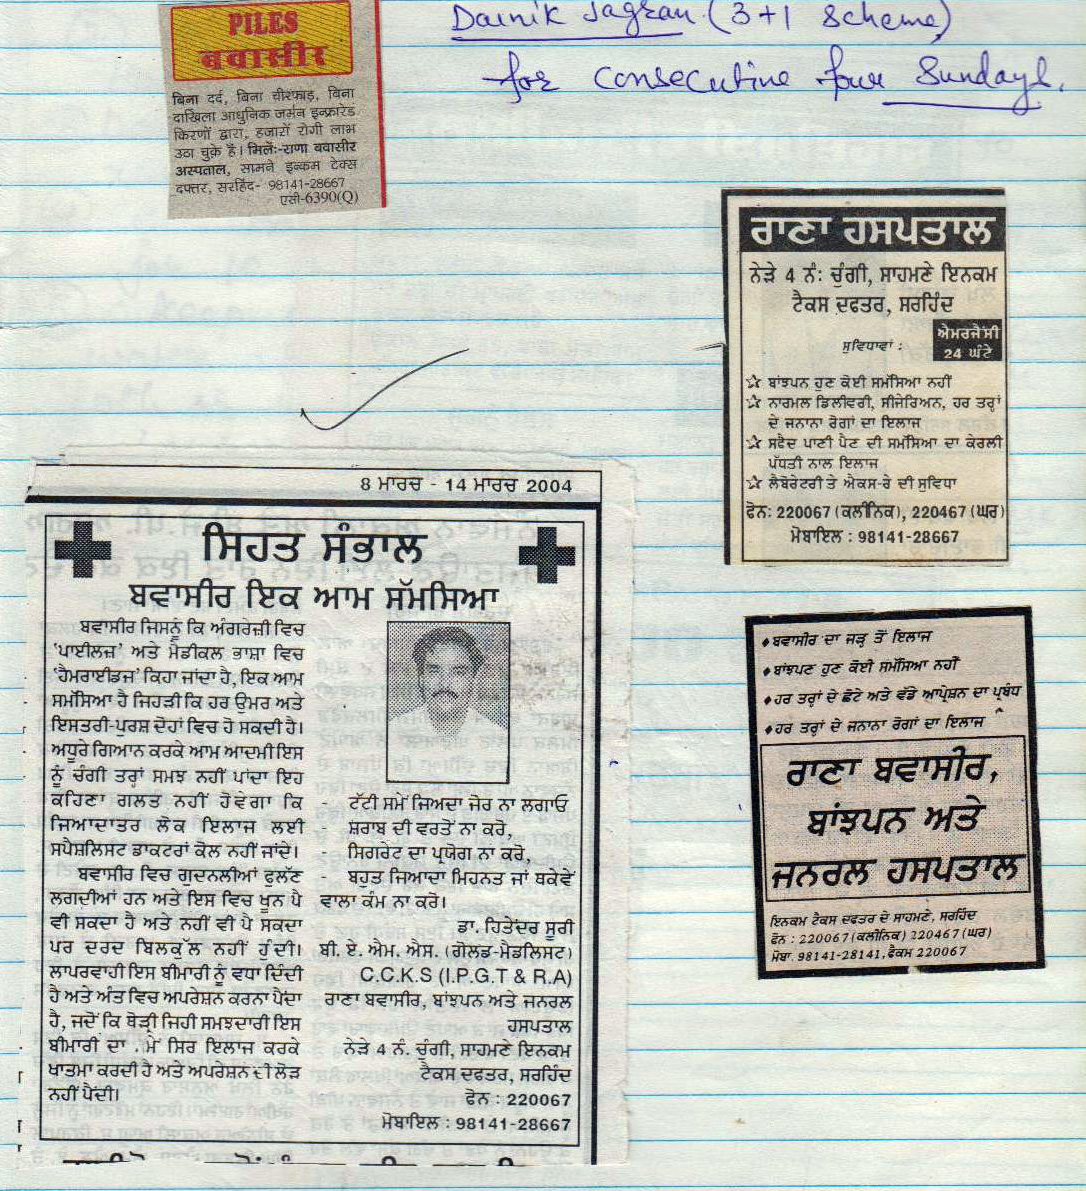 Dainik Jagran (3+1 Scheme)
for consecutive four Sundays.
PILES
बवासीर
बिना दर्द, बिना चीरफाड़, बिना
दाखिला आधुनिक जर्मन इन्फ्रारेड
किरणों द्वारा, हजारों रोगी लाभ
उठा चुके हैं। मिलें:-राणा बवासीर
अस्पताल, सामने इन्कम टेक्स
दफ्तर, सरहिंद- 98141-28667
एसी-6390(Q)
ਰਾਣਾ ਹਸਪਤਾਲ
ਨੇੜੇ 4 ਨੰ: ਚੁੰਗੀ, ਸਾਹਮਣੇ ਇਨਕਮ
ਟੈਕਸ ਦਫਤਰ, ਸਰਹਿੰਦ
ਸੁਵਿਧਾਵਾਂ :
ਐਮਰਜੈਂਸੀ
24 ਘੰਟੇ
☆ ਬਾਂਝਪਨ ਹੁਣ ਕੋਈ ਸਮੱਸਿਆ ਨਹੀਂ
☆ ਨਾਰਮਲ ਡਿਲੀਵਰੀ, ਸੀਜੇਰਿਅਨ, ਹਰ ਤਰ੍ਹਾਂ
ਦੇ ਜਨਾਨਾ ਰੋਗਾਂ ਦਾ ਇਲਾਜ
☆ ਸਫੈਦ ਪਾਣੀ ਪੈਣ ਦੀ ਸਮੱਸਿਆ ਦਾ ਕੇਰਲੀ
ਪੱਧਤੀ ਨਾਲ ਇਲਾਜ
☆ ਲੈਬੋਰੇਟਰੀ ਤੇ ਐਕਸ-ਰੇ ਦੀ ਸੁਵਿਧਾ
ਫੋਨ: 220067 (ਕਲੀਨਿਕ), 220467 (ਘਰ)
ਮੋਬਾਇਲ : 98141-28667
8 ਮਾਰਚ - 14 ਮਾਰਚ 2004
ਸਿਹਤ ਸੰਭਾਲ
ਬਵਾਸੀਰ ਇਕ ਆਮ ਸੱਮਸਿਆ
ਬਵਾਸੀਰ ਜਿਸਨੂੰ ਕਿ ਅੰਗਰੇਜ਼ੀ ਵਿਚ
'ਪਾਈਲਜ਼' ਅਤੇ ਮੈਡੀਕਲ ਭਾਸ਼ਾ ਵਿਚ
'ਹੈਮਰਾਈਡਜ' ਕਿਹਾ ਜਾਂਦਾ ਹੈ, ਇਕ ਆਮ
ਸਮੱਸਿਆ ਹੈ ਜਿਹੜੀ ਕਿ ਹਰ ਉਮਰ ਅਤੇ
ਇਸਤਰੀ-ਪੁਰਸ਼ ਦੋਹਾਂ ਵਿਚ ਹੋ ਸਕਦੀ ਹੈ।
ਅਧੂਰੇ ਗਿਆਨ ਕਰਕੇ ਆਮ ਆਦਮੀ ਇਸ
ਨੂੰ ਚੰਗੀ ਤਰ੍ਹਾਂ ਸਮਝ ਨਹੀਂ ਪਾਂਦਾ ਇਹ
ਕਹਿਣਾ ਗਲਤ ਨਹੀਂ ਹੋਵੇਗਾ ਕਿ
ਜਿਆਦਾਤਰ ਲੋਕ ਇਲਾਜ ਲਈ
ਸਪੈਸ਼ਲਿਸਟ ਡਾਕਟਰਾਂ ਕੋਲ ਨਹੀਂ ਜਾਂਦੇ।
ਬਵਾਸੀਰ ਵਿਚ ਗੁਦਨਲੀਆਂ ਫੁਲੱਣ
ਲਗਦੀਆਂ ਹਨ ਅਤੇ ਇਸ ਵਿਚ ਖੂਨ ਪੈ
ਵੀ ਸਕਦਾ ਹੈ ਅਤੇ ਨਹੀਂ ਵੀ ਪੈ ਸਕਦਾ
ਪਰ ਦਰਦ ਬਿਲਕੁੱਲ ਨਹੀਂ ਹੁੰਦੀ।
ਲਾਪਰਵਾਹੀ ਇਸ ਬੀਮਾਰੀ ਨੂੰ ਵਧਾ ਦਿੰਦੀ
ਹੈ ਅਤੇ ਅੰਤ ਵਿਚ ਅਪਰੇਸ਼ਨ ਕਰਨਾ ਪੈਂਦਾ
ਹੈ, ਜਦੋਂ ਕਿ ਥੋੜੀ ਜਿਹੀ ਸਮਝਦਾਰੀ ਇਸ
ਬੀਮਾਰੀ ਦਾ ਸਿਰ ਇਲਾਜ ਕਰਕੇ
ਖਾਤਮਾ ਕਰਦੀ ਹੈ ਅਤੇ ਅਪਰੇਸ਼ਨ ਦੀ ਲੋੜ
ਨਹੀਂ ਪੈਂਦੀ।
- ਟੱਟੀ ਸਮੇਂ ਜਿਅਦਾ ਜੋਰ ਨਾ ਲਗਾਓ
- ਸ਼ਰਾਬ ਦੀ ਵਰਤੋਂ ਨਾ ਕਰੋ,
ਸਿਗਰੇਟ ਦਾ ਪ੍ਰਯੋਗ ਨਾ ਕਰੋ,
- ਬਹੁਤ ਜਿਆਦਾ ਮਿਹਨਤ ਜਾਂ ਥਕੇਵੇਂ
ਵਾਲਾ ਕੰਮ ਨਾ ਕਰੋ।
ਡਾ. ਹਿਤੇਂਦਰ ਸੂਰੀ
ਬੀ. ਏ. ਐਮ. ਐਸ. (ਗੋਲਡ-ਮੈਡਲਿਸਟ)
C.C.K.S (I.P.G.T & R.A)
ਰਾਣਾ ਬਵਾਸੀਰ, ਬਾਂਝਪਨ ਅਤੇ ਜਨਰਲ
ਹਸਪਤਾਲ
ਨੇੜੇ 4 ਨੰ. ਚੁੰਗੀ, ਸਾਹਮਣੇ ਇਨਕਮ
ਟੈਕਸ ਦਫਤਰ, ਸਰਹਿੰਦ
ਫੋਨ : 220067
ਮੋਬਾਇਲ : 98141-28667
♦ ਬਵਾਸੀਰ ਦਾ ਜੜ੍ਹ ਤੋਂ ਇਲਾਜ
♦ ਬਾਂਝਪਣ ਹੁਣ ਕੋਈ ਸਮੱਸਿਆ ਨਹੀਂ
♦ ਹਰ ਤਰ੍ਹਾਂ ਦੇ ਛੋਟੇ ਅਤੇ ਵੱਡੇ ਆਪ੍ਰੇਸ਼ਨ ਦਾ ਪ੍ਰਬੰਧ
♦ ਹਰ ਤਰ੍ਹਾਂ ਦੇ ਜਨਾਨਾ ਰੋਗਾਂ ਦਾ ਇਲਾਜ
ਰਾਣਾ ਬਵਾਸੀਰ,
ਬਾਂਝਪਨ ਅਤੇ
ਜਨਰਲ ਹਸਪਤਾਲ
ਇਨਕਮ ਟੈਕਸ ਦਫਤਰ ਦੇ ਸਾਹਮਣੇ, ਸਰਹਿੰਦ
ਫੋਨ : 220067 (ਕਲੀਨਿਕ) 220467 (ਘਰ)
ਮੋਬਾ. 98141-28141, ਫੈਕਸ 220067